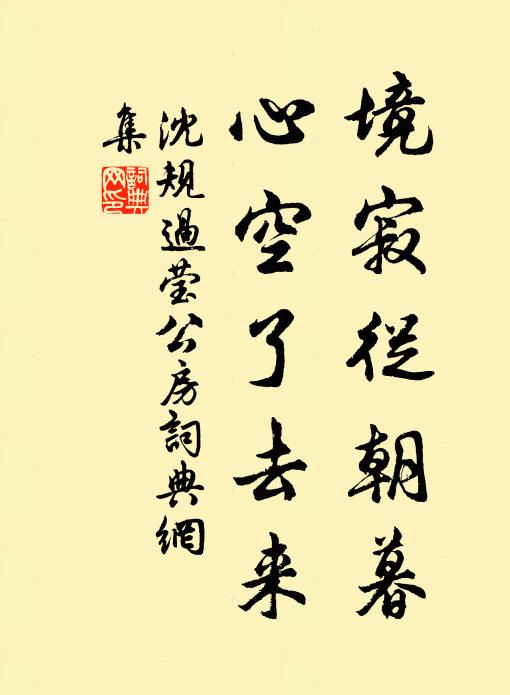 境寂從朝暮
心空了去来
沈規過莹公房詞典網
集
詞典
网印